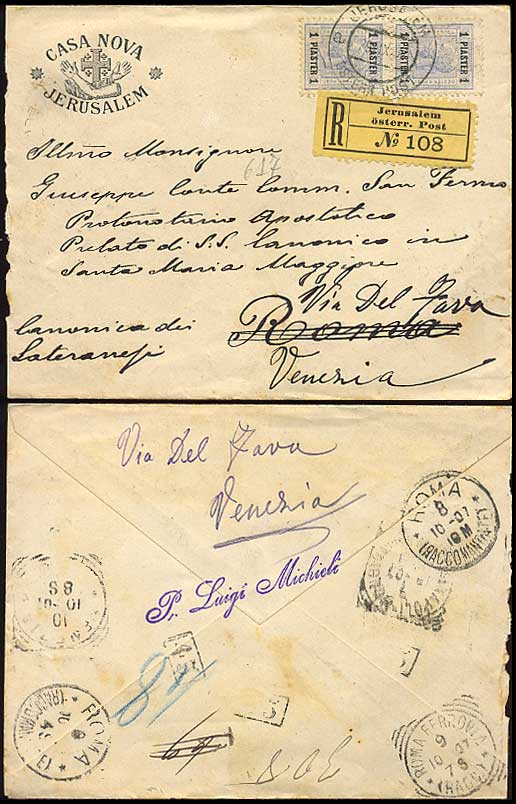 CASA NOVA
JERUSALEM
JERUSALEM
1 PIASTER 1
1 PIASTER 1
1 PIASTER 1
1 PIASTER 1
R
Jerusalem
österr. Post
No 108
617
Illmo Monsignore
Giuseppe Conte Comm. San Fermo
Protonotario Apostolico
Prelato di S.S. Canonico in
Santa Maria Maggiore
Via Del Fava
Roma
Canonica dei
Lateranesi
Venezia
Via Del Fava
Venezia
P. Luigi Michieli
ROMA
8
10-07
10M
(RACCOMANDATE)
10
10-07
8S
ROMA
ROMA FERROVIA
9
10 07
7S
(RACC.)